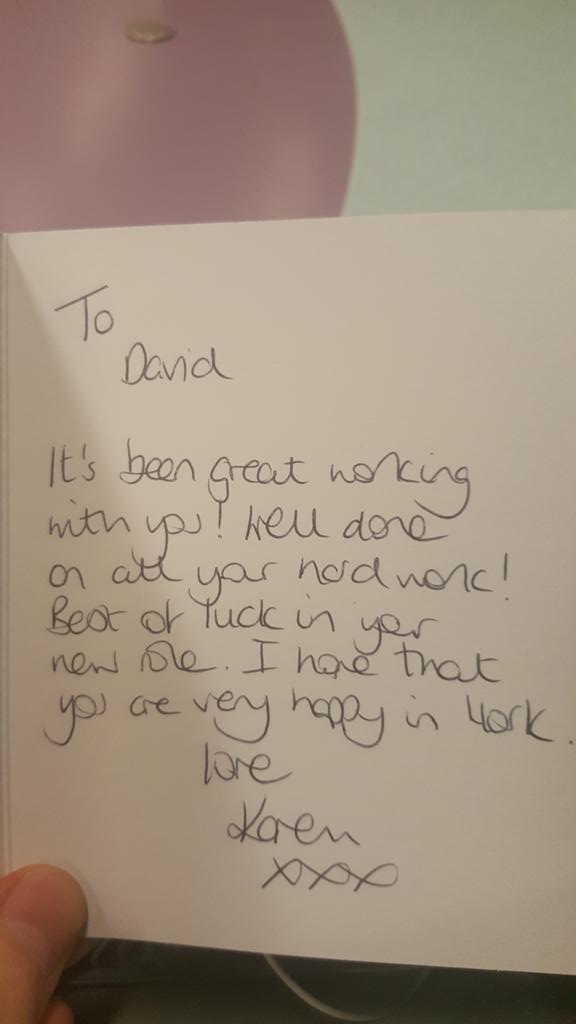 To
David
It's been great working
with you! Well done
on all your hard work!
Best of luck in your
new role. I hope that
you are very happy in York.
love
Karen
xxx